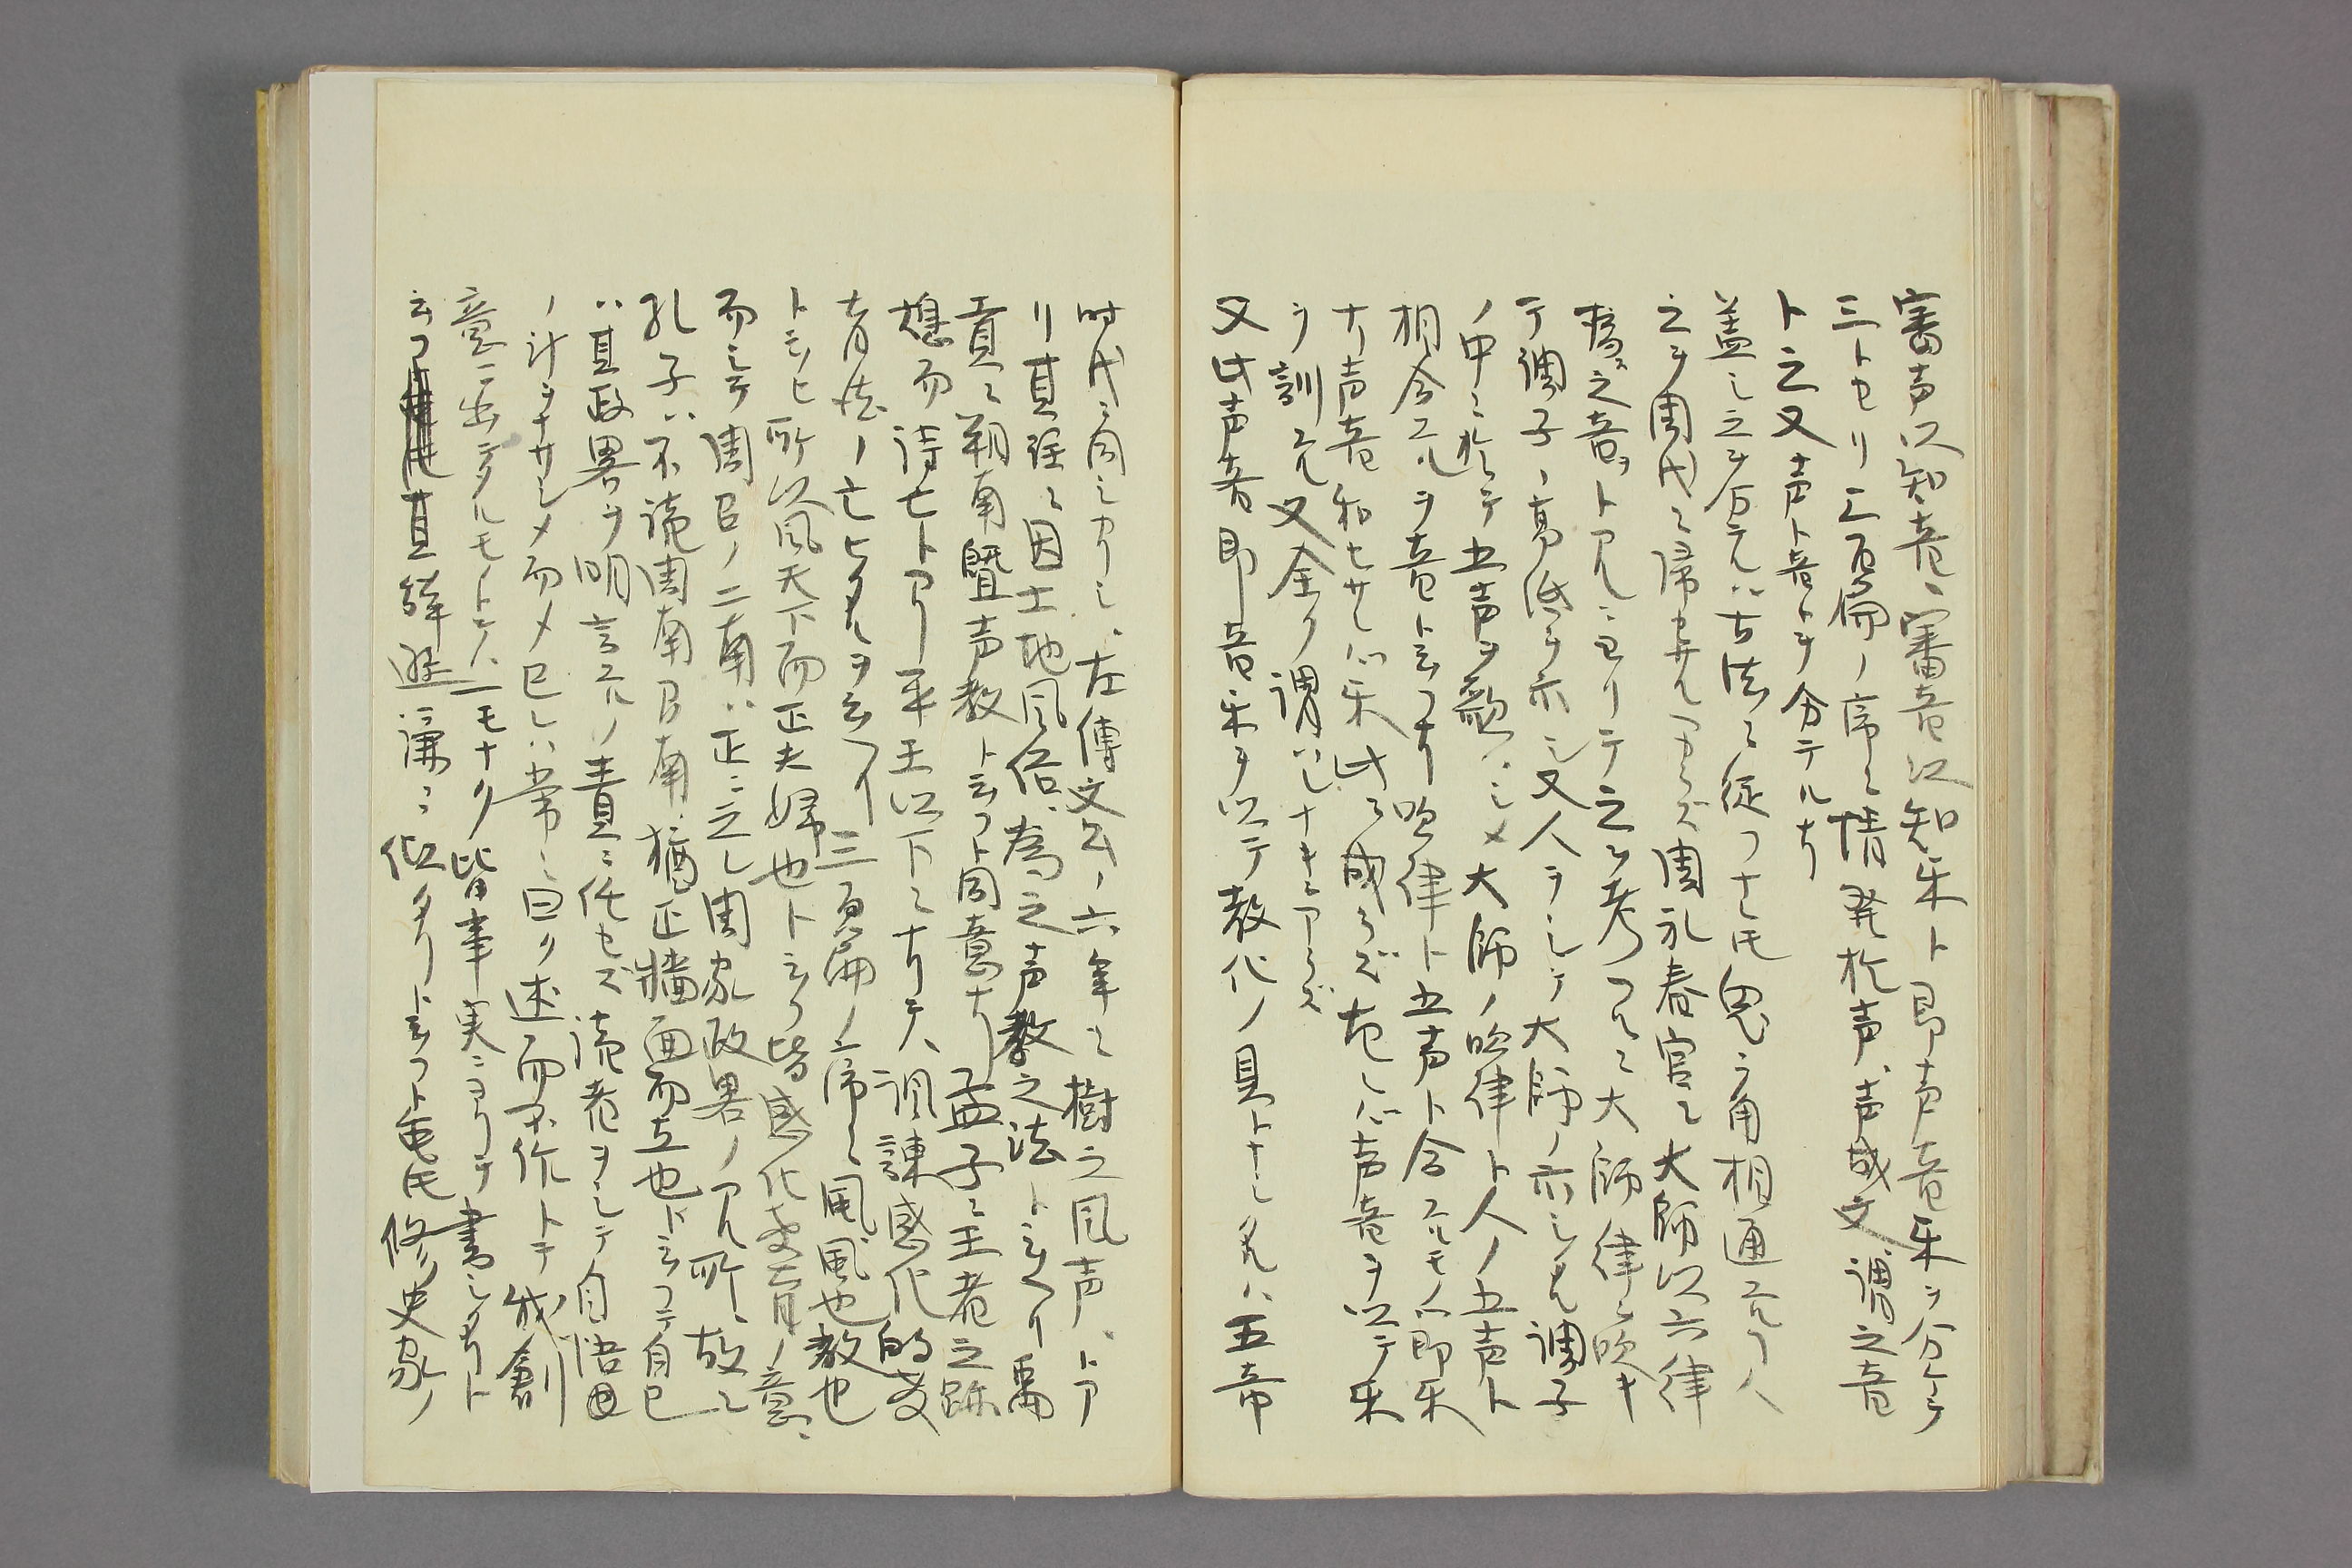 審声以知音、審音以知楽ト即声音楽ヲ分ケテ
三トセリ三百篇ノ序ニ情発於声、声成文謂之音
ト之又声ト音トヲ分テルナリ
蓋シ之ヲ分テルハ古法ニ従フナレ𪜈
之ヲ周代ニ帰セルアラズ周礼春官ニ大師以六律
為之音ヲトアルニ至リテ之ヲ考フルニ大師律ヲ吹キ
テ調子ノ高低ヲ示シ又人ヲシテ大師ノ示シタル調子
ノ中ニ於テ五声ヲ歌ハシメ大師ノ吹律ト人ノ五声ト
相合スルヲ音ト云フナリ吹律ト五声ト合スルモノハ即楽
ナリ声音和セサレバ楽此ニ成ラズ声音ヲ以テ楽
ヲ訓ル又全ク謂ハレナキニアラズ
又此声音即音楽ヲ以テ教化ノ具トナシタルハ五帝
時代ニ同シカリシ、左傳文公ノ六年ニ樹之風声、トア
リ其註ニ因土地風俗、為之声教之法ト云ヘリ禹
貢ニ朔南曁声教ト云フト同意ナリ孟子ニ王者之跡
熄而詩亡トアリ平王以下ニナリテハ諷諫感化的
ノ亡ヒタルヲ云ヘリ三百篇ノ序ニ風、風也教也
ト云ヒ所以風天下而正夫婦也ト云フ皆感化ノ意、
而シテ周召ノ二南ハ正ニ之レ周家政畧ノアル所、故ニ
孔子ハ不読周南召南、猶正牆面而立也ト云フテ自己
ハ其政畧ヲ明言スルノ責ニ任セズ読者ヲシテ自悟
ノ計ヲナサシメ而メ己レハ常ニ曰ク述而不作トテ創
意ニ出テタルモノトテハ一モナク皆事実ニヨリテ書シタリト
云フ其辞遜謙ニ似タリト云フト𪜈修史家ノ